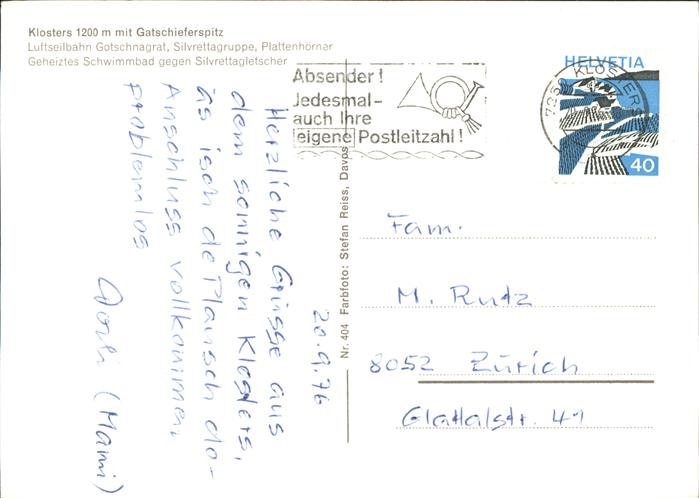 Klosters 1200 m mit Gatschieferspitz
Luftseilbahn Gotschnagrat, Silvrettagruppe, Plattenhörner
Geheiztes Schwimmbad gegen Silvrettagletscher
Absender!
Jedesmal-
auch Ihre
eigene Postleitzahl!
7250 KLOSTERS
HELVETIA
40
20.9.76
Herzliche Grüsse aus
dem sonnigen Klosters,
äs isch de Plausch do-
Anschluss vollkommen
problemlos
(Mami)
Nr. 404 Farbfoto: Stefan Reiss, Davos
Fam.
M. Rutz
8052 Zürich
Glattalstr. 41